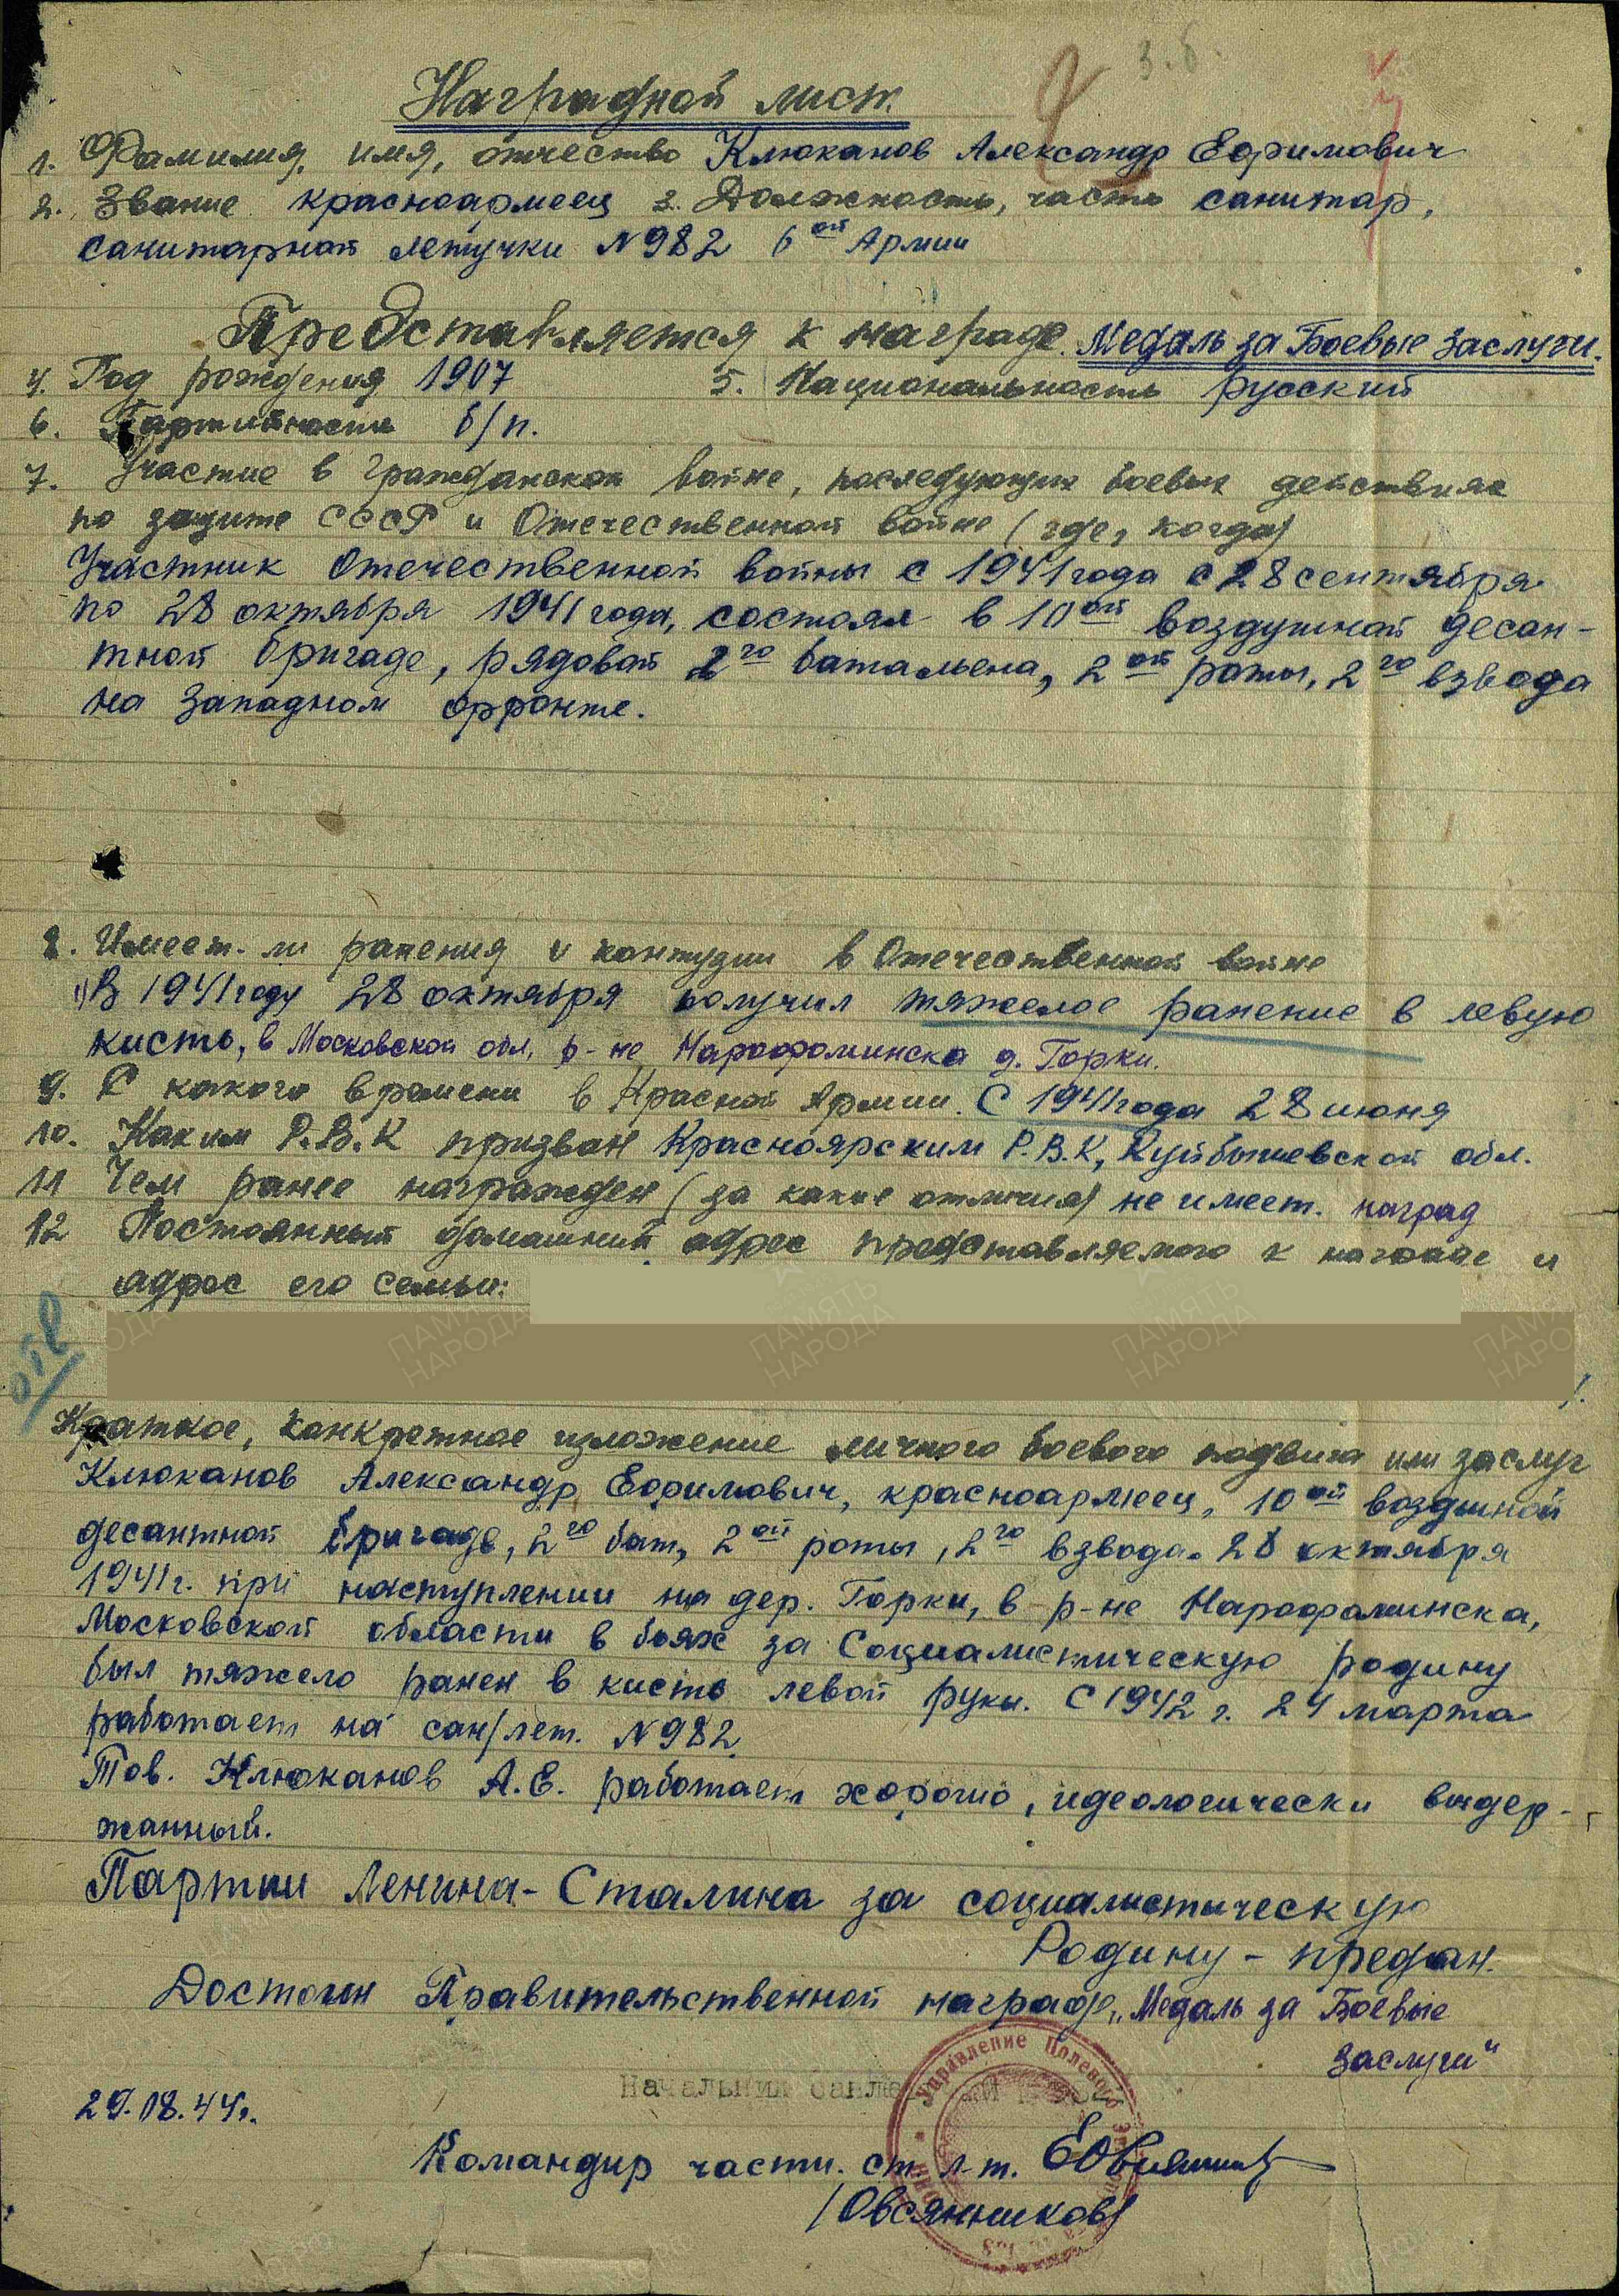 Наградной лист.
1. Фамилия, имя, отчество Клюканов Александр Ефимович
2. Звание красноармеец 3. Должность, часть санитар,
санитарной летучки №982 6ой Армии
Представляется к награде. Медаль за Боевые Заслуги.
4. Год рождения 1907 5. Национальность русский
6. Партийность б/п.
7. Участие в Гражданской войне, последующих боевых действиях
по защите СССР и Отечественной войне (где, когда)
Участник Отечественной войны с 1941 года с 28 сентября
по 28 октября 1941 года, состоял в 10ой воздушной десан-
тной бригаде, рядовой 2го батальена, 2ой роты, 2го взвода
на Западном фронте.
8. Имеет-ли ранения и контузии в Отечественной войне
1) В 1941 году 28 октября получил тяжелое ранение в левую
кисть, в Московской обл. р-не Нарофоминска д. Горки.
9. С какого времени в Красной Армии. С 1941 года 28 июня
10. Каким Р.В.К призван Красноярским Р.В.К, Куйбышевской обл.
11 Чем ранее награжден (за какие отличия) не имеет. наград
12 Постоянный домашний адрес представляемого к награде и
адрес его семьи:
Краткое, конкретное изложение личного боевого подвига или заслуг
Клюканов Александр Ефимович, красноармеец, 10ой воздушной
десантной бригаде, 2го бат, 2ой роты, 2го взвода. 28 октября
1941г. при наступлении на дер. Горки, в р-не Нарофоминска,
Московской области в боях за Социалистическую родину
был тяжело ранен в кисть левой руки. С 1942 г. 24 марта
работает на сан/лет. №982.
Тов. Клюканов А.Е. работает хорошо, идеологически выдер-
жанный.
Партии Ленина-Сталина за социалистическую
Родину - предан.
Достоин Правительственной награды „Медаль за Боевые
Заслуги"
Управление Полевой
Начальник
29.08.44г.
Командир части. ст. л-т.
/Овсянников/
ПАМЯТЬ НАРОДА